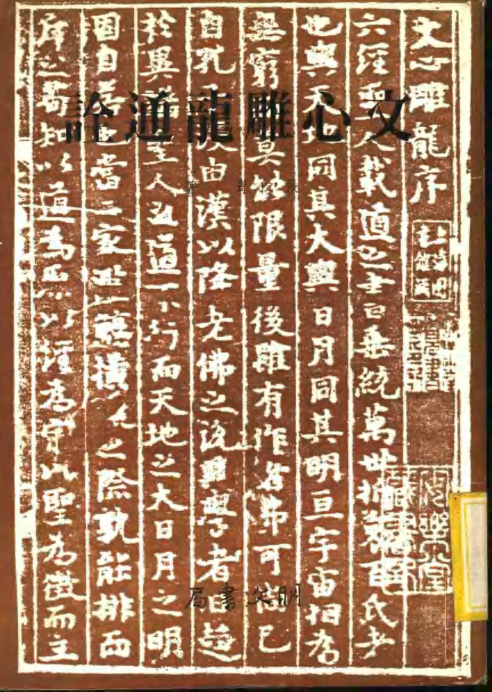 文心雕龍通詮
文心雕龍序
六經聖人載道之書垂統萬世折衷百氏者
也與天地同其大與日月同其明亘宇宙相為
無窮莫能限量後雖有作者弗可尚已
自孔由漢以降老佛之說興學者日趨
於異端聖人之道不行而天地之大日月之明
固自若也當二家橫流之際孰能排而
斥之苟知以道為原以經為宗以聖為徵而主
明文書局